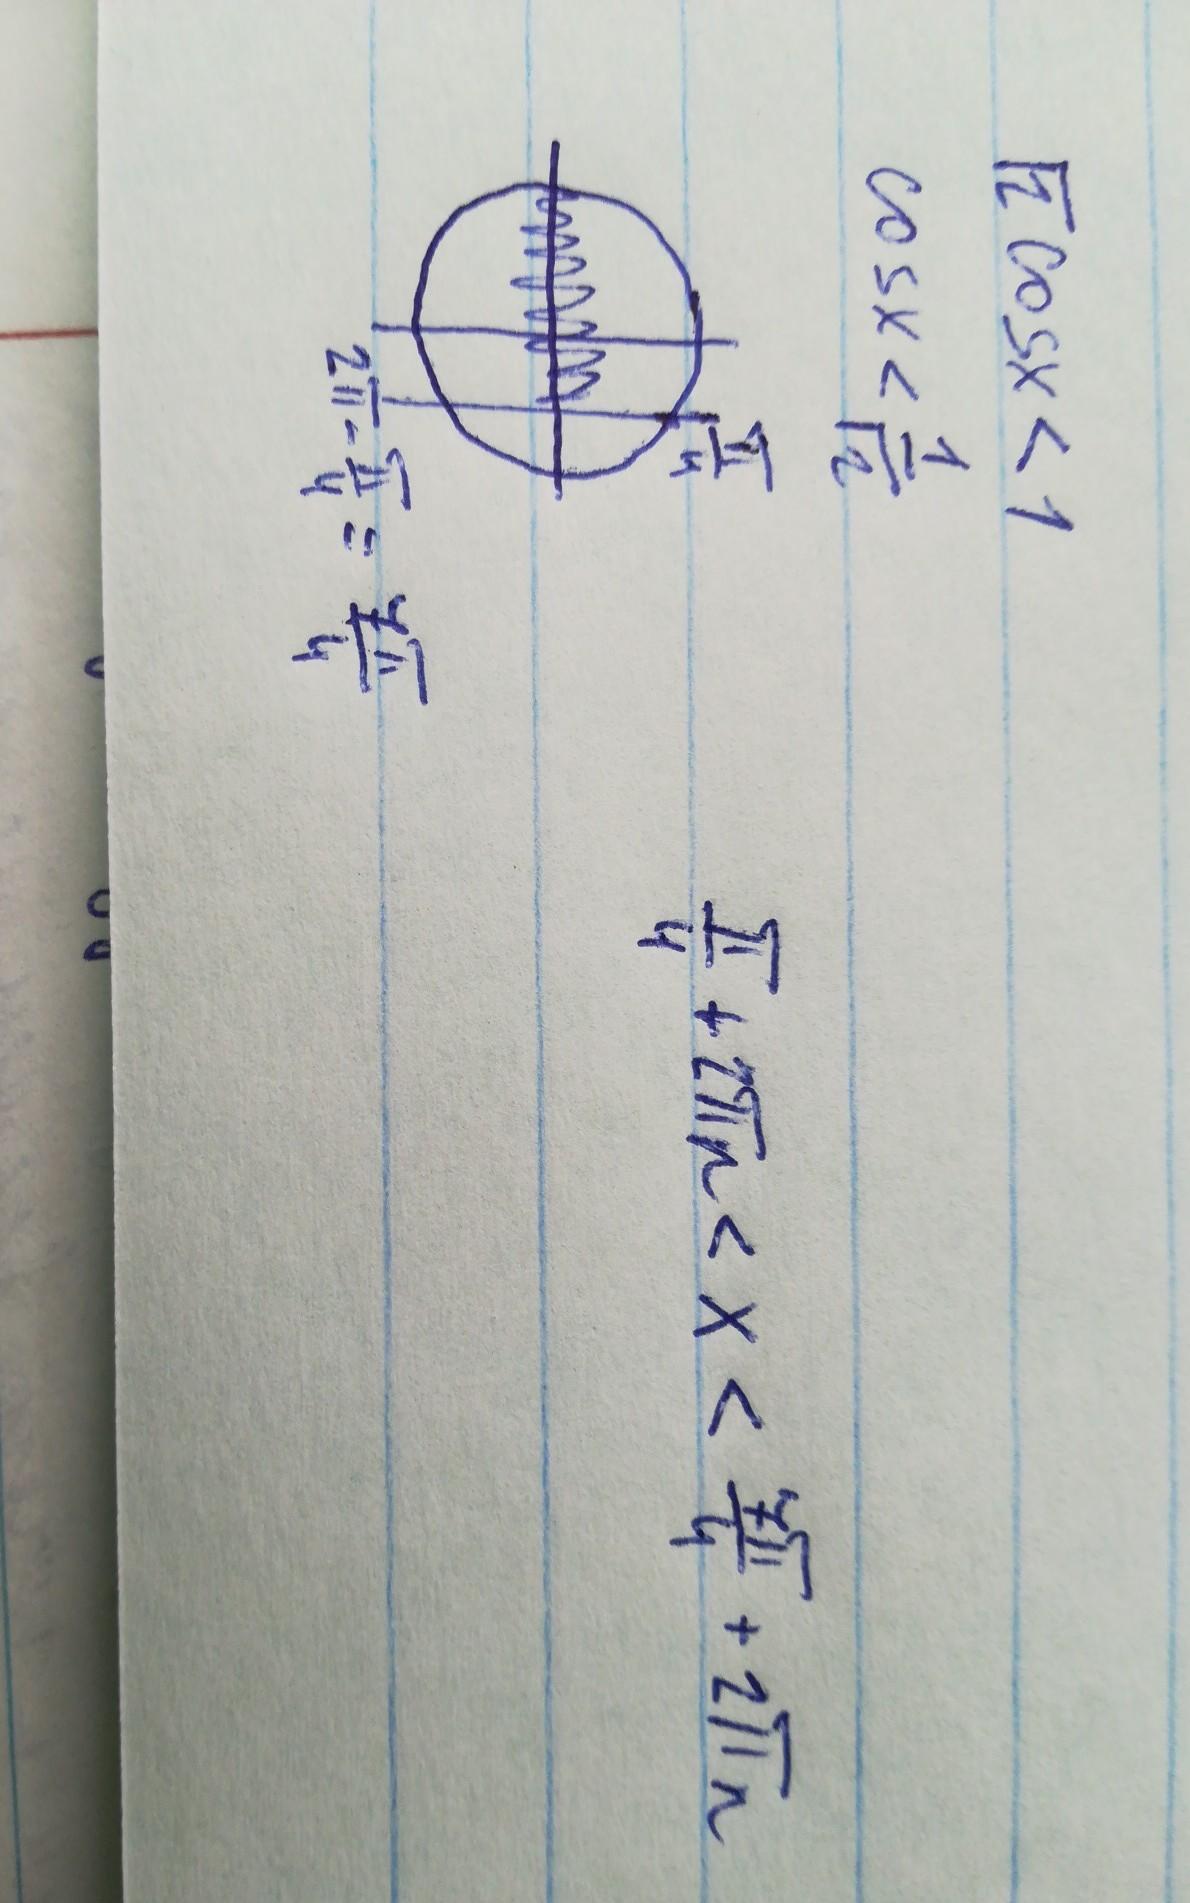 √2 cosx < 1
cosx < 1/√2
π/4
2π - π/4 = 7π/4
π/4 + 2πn < x < 7π/4 + 2πn